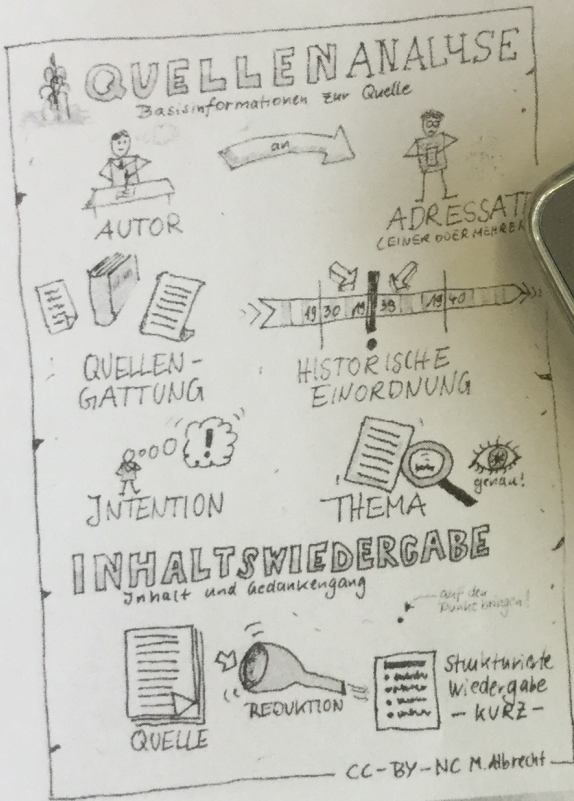 QUELLENANALYSE
Basisinformationen zur Quelle
an
AUTOR
ADRESSAT
(EINER ODER MEHRERE
QUELLEN-
GATTUNG
19 30 19 39 19 40
HISTORISCHE
EINORDNUNG
!
INTENTION
THEMA
genau!
INHALTSWIEDERGABE
Inhalt und Gedankengang
auf den
Punkt bringen!
QUELLE
REDUKTION
Strukturierte
Wiedergabe
- KURZ -
CC-BY-NC M. Albrecht